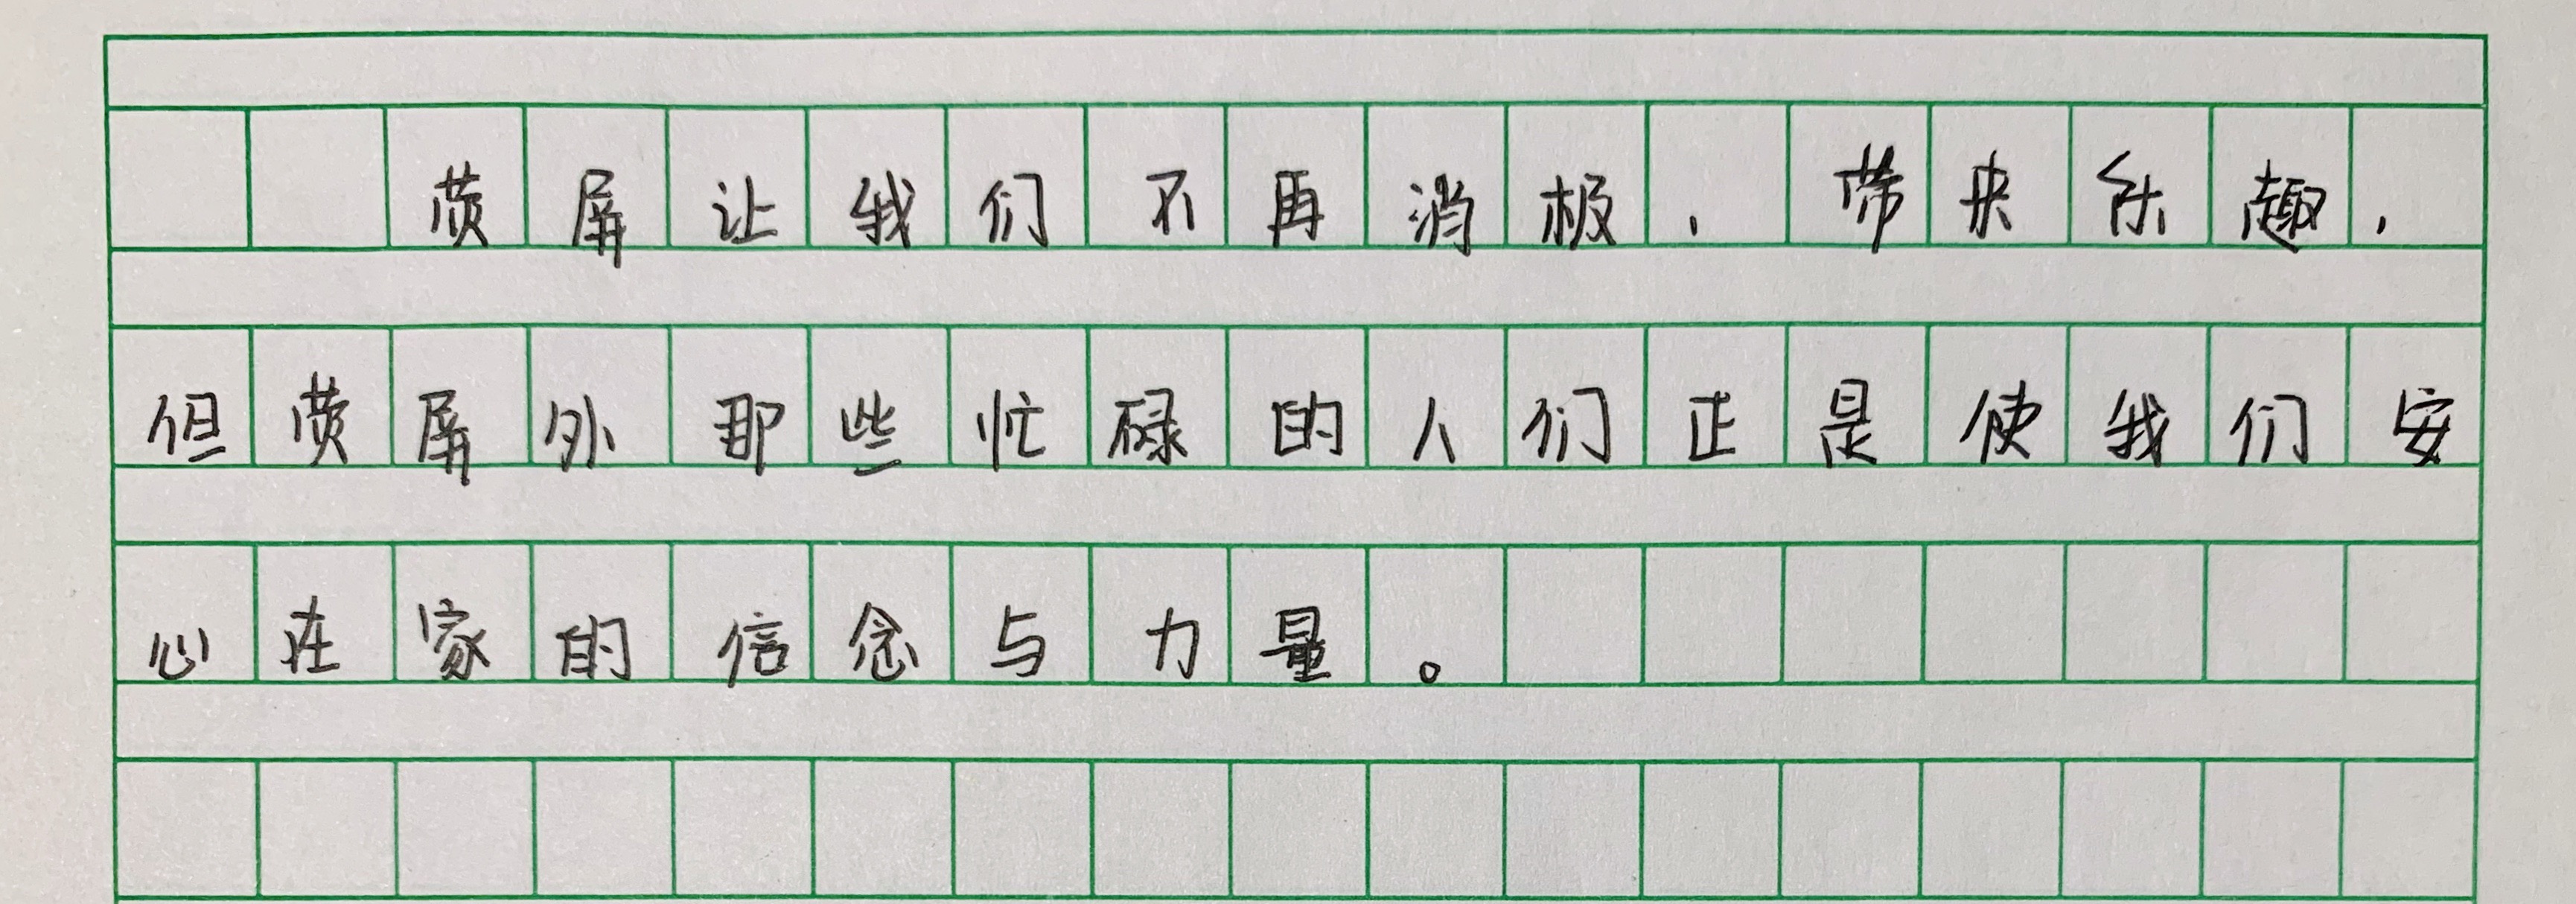 荧屏让我们不再消极，带来乐趣，
但荧屏外那些忙碌的人们正是使我们安
心在家的信念与力量。